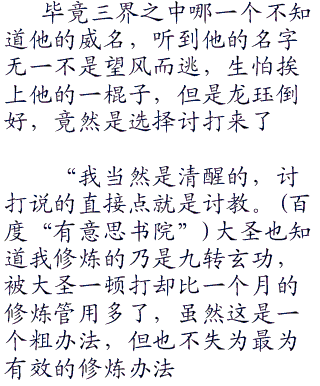 毕竟三界之中哪一个不知
道他的威名，听到他的名字
无一不是望风而逃，生怕挨
上他的一棍子，但是龙珏倒
好，竟然是选择讨打来了
“我当然是清醒的，讨
打说的直接点就是讨教。(百
度“有意思书院”)大圣也知
道我修炼的乃是九转玄功，
被大圣一顿打却比一个月的
修炼管用多了，虽然这是一
个粗办法，但也不失为最为
有效的修炼办法